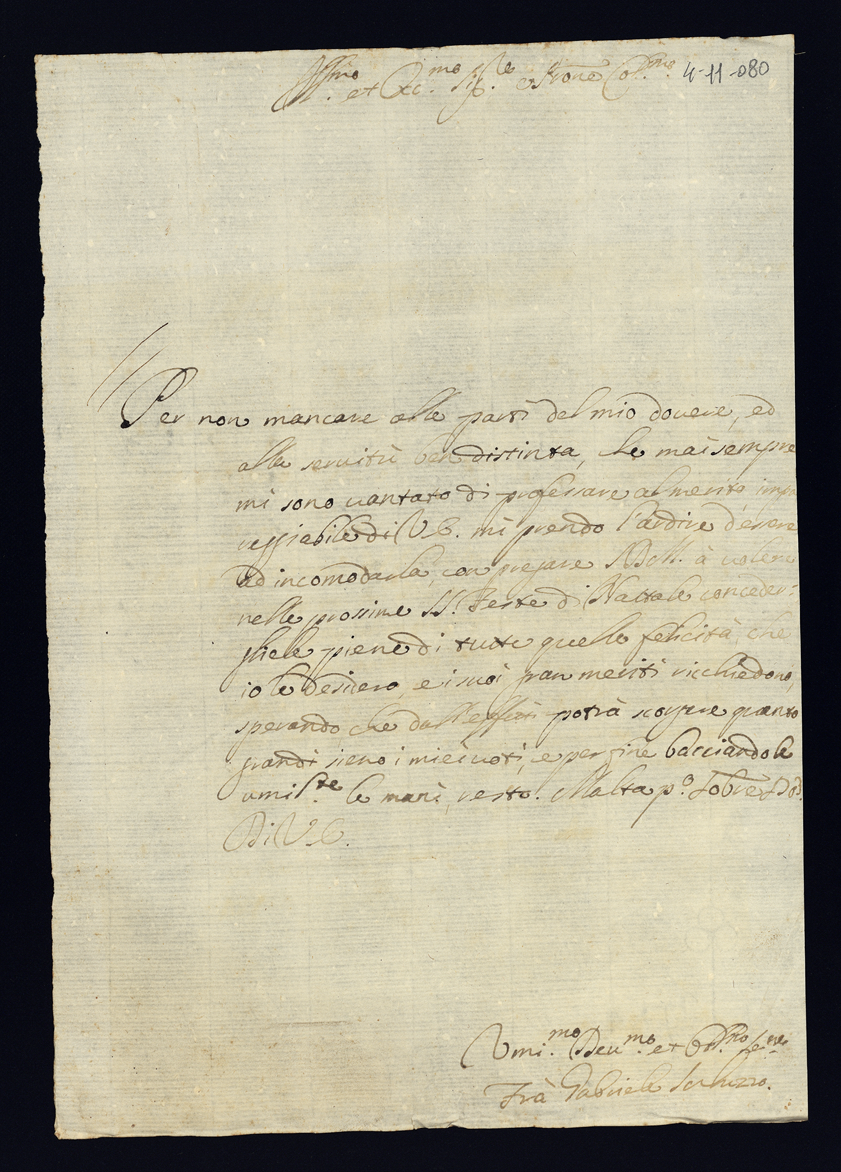 Ill.mo et Ecc.mo Sig.re e Prone Col.mo 4-11-080
Per non mancare alle parti del mio douere, ed
alla seruitù ben distinta, che mai sempre
mi sono uantato di professare al merito impa
reggiabile di V.E. mi prendo l'ardire d'essere
ad incomodarla, con pregare a uoler
nelle prossime SS. Feste di Natale conceder:
gliele piene di tutte quelle felicità, che
io le desidero, e i suoi gran meriti ricchiedono,
sperando che dall'effetti potrà scorgere quanto
grandi sieno i miei uoti, e per fine bacciandole
umil.te le mani, resto. Malta p.o
Di V.E.
Umi.mo Deu.mo et Obb.mo Se.re
Frà Gabriele